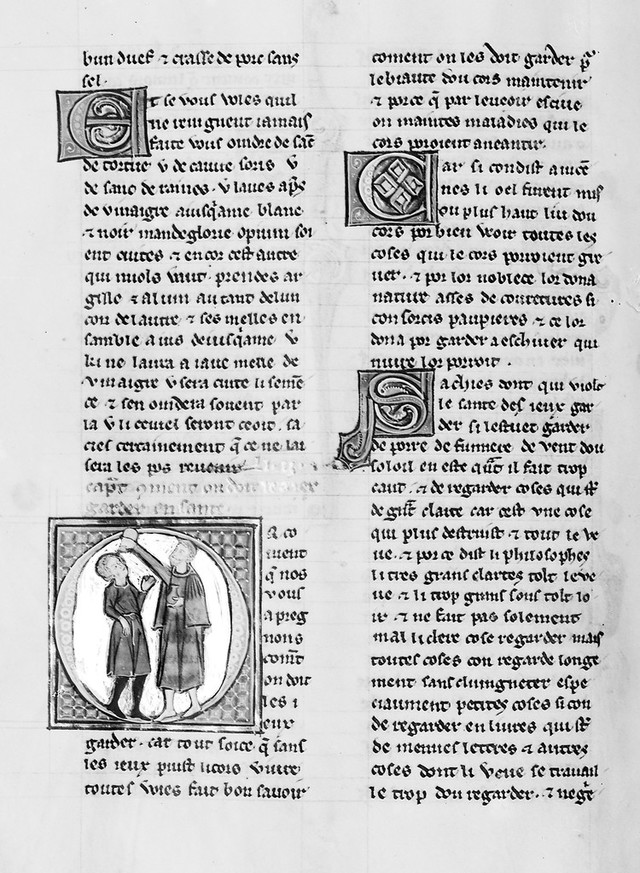 bun duef & crasse de porc sans
sel.
Et se vous voles quil
ne reviegnent iamais
faite vous oindre de sanc
de tortue v de cauue soris v
de sanc de raines. v laues apres
de vinaigre aiusqame blanc
& noir mandeglorie opium soi
ent cuites & encor cest autre
qui mols vaut. prendes ar
gille & alum autant delun
con de lautre & ses melles en
samble a ius de iusqame v
ki ne laura a iaue melle de
vinaigre v sera cuite li semen
ce & sen oindera souent par
la v li cheuel seront ceoit. sa
cies certainement q ce ne lai
sera les pos reuenir
capt. coment on doit les iex
garder en sante
a co
ment
q nos
vous
apreg
nons
comt
on doit
les i
eux
garder. car tout soice q sans
les ieux puist li cors viure
toutes voies fait bon sauoir
coment on les doit garder pr
le biaute dou cors maintenir
& por ce q par le veoir eschiue
on maintes maladies qui le
cors poroient aneantir.
Car si con dist auicen
nes li oel furent mis
ou plus haut liu dou
cors por bien veoir toutes les
coses qui le cors porroient gre
uer. & por lor noblece lor dona
nature asses de couretures si
con sorcis paupieres & ce lor
dona por garder & eschiuer qui
nuire lor porroit.
Sachies dont qui violt
le sante des ieux gar
der si lestuet garder
de porre de fumiere de vent dou
soloil en este quant il fait trop
caut. & de regarder coses qui st
de grant clarte car cest vne cose
qui plus destruist & tout le ve
ue. & por ce dist li philosophes
li tres grans clartes tolt le ve
ue & li trop grans sons tolt lo
ir & ne fait pas solement
mal li clere cose regarder mais
toutes coses con regarde longe
ment sans clungneter espe
ciaument petites coses si con
de regarder en liures qui st
de menues lettres & autres
coses dont li veue se trauail
le trop dou regarder. & negre